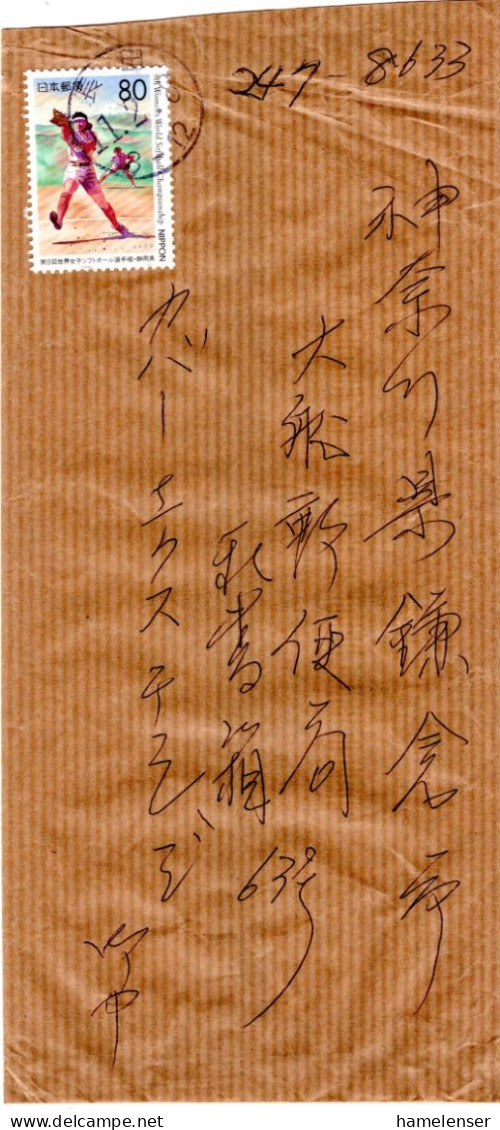 日本郵便 80
9th Women's World Softball Championship
NIPPON
第9回世界女子ソフトボール選手権・静岡県
247-8633
神奈川県鎌倉市
大船郵便局
私書箱63号
カバーエクスチェンジ
御中
hamelenser